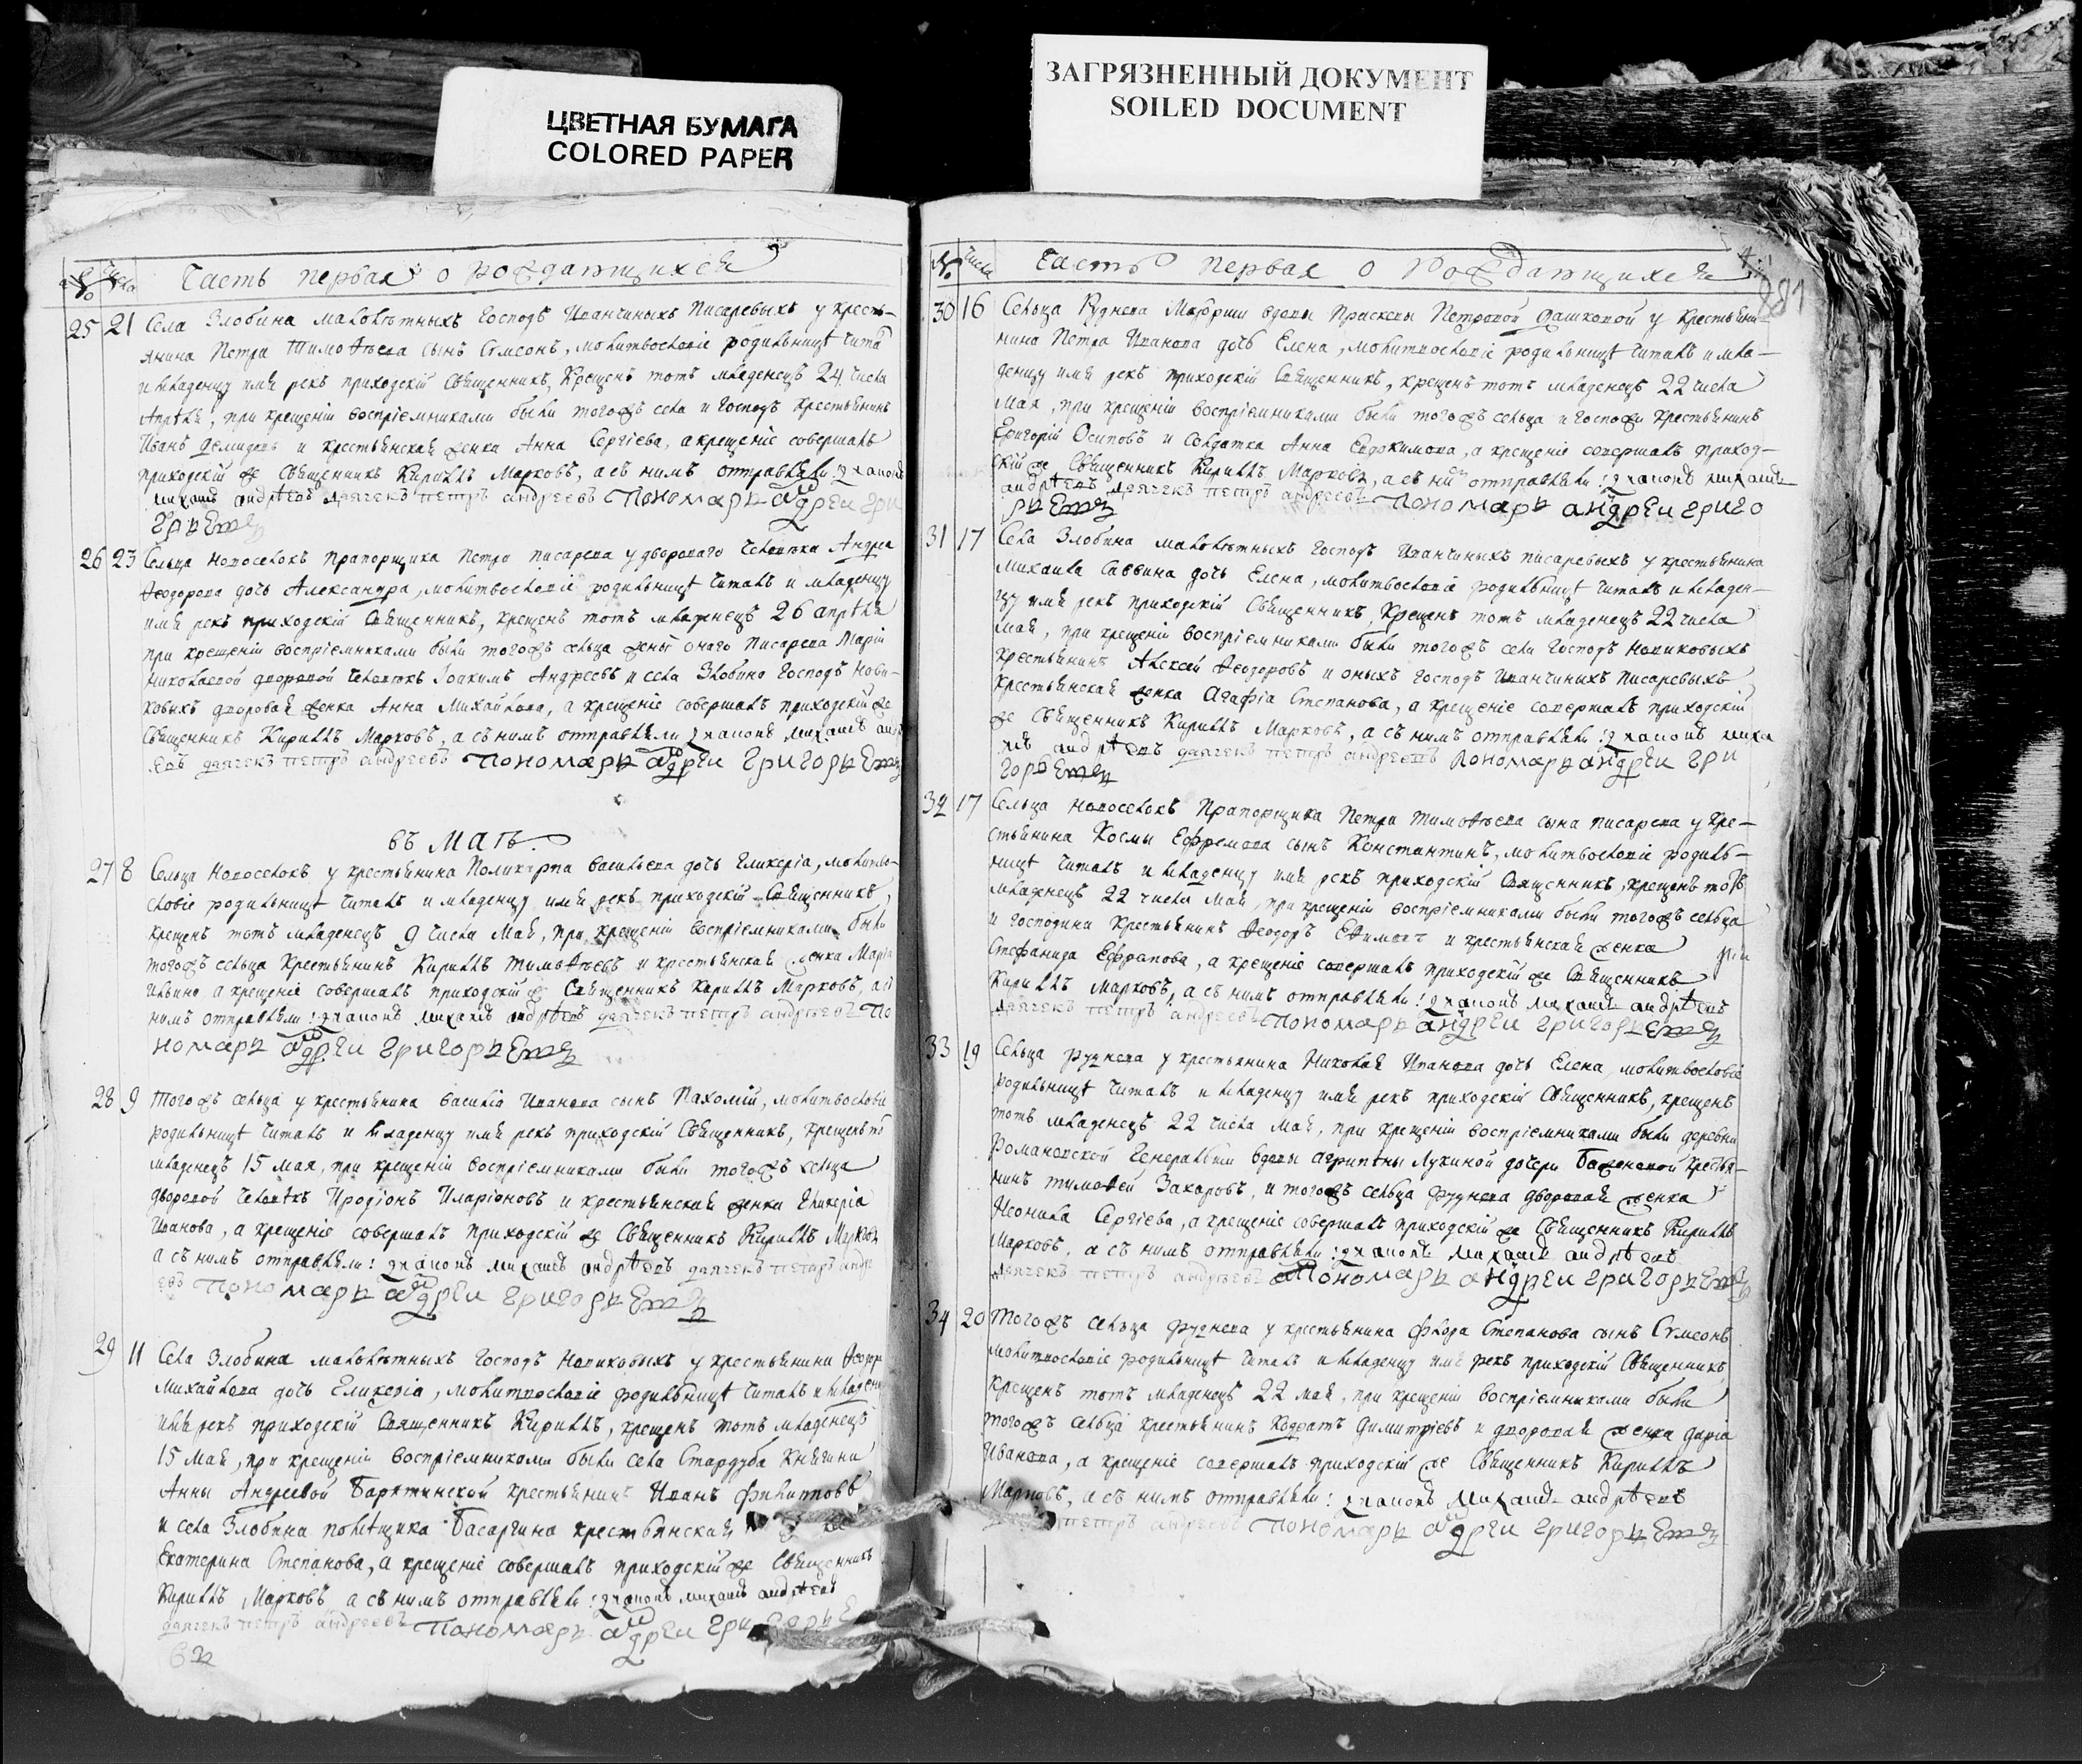 ЦВЕТНАЯ БУМАГА
COLORED PAPER
ЗАГРЯЗНЕННЫЙ ДОКУМЕНТ
SOILED DOCUMENT
№ числа Часть первая о рождающихся
25 21 Села Злобина малолѣтныхъ Господъ Иванчиныхъ Писаревыхъ у кресть-
янина Петра Тимоѳѣева сынъ Сѵмеонъ, молитвословіе родильницѣ чита
и младенцу имя рекъ приходскій Священникъ, Крещенъ тотъ младенецъ 24 числа
Апрѣля, при крещеніи воспріемниками были тогожъ села и Господъ крестьянинъ
Иванъ Демидовъ и крестьянская женка Анна Сергіева, а крещеніе совершалъ
приходскій же Священникъ Кириллъ Марковъ, а съ нимъ отправляли: диаконъ
михаилъ андрѣевъ дьячекъ петръ андреевъ Пономарь андреи гри
горьевъ
26 23 Сельца Новоселокъ прапорщика Петра писарева у двороваго человѣка Андрея
Ѳеодорова дочь Александра, молитвословіе родильницѣ читалъ и младенцу
имя рекъ приходскій Священникъ, крещенъ тотъ младенецъ 26 апрѣля
при крещеніи воспріемниками были тогожъ сельца жены онаго Писарева Маріи
николаевой дворовой человѣкъ Іоакимъ Андреевъ и села Злобино Господъ Нови-
ковыхъ дворовая женка Анна Михайлова, а крещеніе совершалъ приходскій же
Священникъ Кириллъ Марковъ, а съ нимъ отправляли диаконъ михаилъ андрѣ
евъ дьячекъ петръ андреевъ Пономарь андреи григорьевъ
въ маіѣ.
27 8 Сельца Новоселокъ у крестьянина Поликарпа васильева дочь Гликеріа, молитво-
словіе родильницѣ читалъ и младенцу имя рекъ приходскій Священникъ
крещенъ тотъ младенецъ 9 числа Мая, при крещеніи воспріемниками были
тогожъ сельца Крестьянинъ Кириллъ тимоѳѣевъ и крестьянская женка Маріа
ильина а крещеніе совершалъ приходскій же Священникъ Кириллъ Марковъ, а съ
нимъ отправляли: диаконъ михаилъ андрѣевъ дьячекъ петръ андреевъ По
номарь андреи григорьевъ
28 9 Тогожъ сельца у крестьянина василіа Иванова сынъ Пахомій, молитвословіе
родильницѣ читалъ и младенцу имя рекъ приходскій Священникъ, крещенъ то
младенецъ 15 мая, при крещеніи воспріемниками были тогожъ сельца
дворовой человѣкъ Иродіонъ Иларіоновъ и крестьянская женка Гликеріа
Иванова, а крещеніе совершалъ приходскій же Священникъ Кириллъ Марковъ
а съ нимъ отправляли: диаконъ михаилъ андрѣевъ дьячекъ петръ андре
евъ Пономарь андреи григорьевъ
29 11 Села Злобина малолѣтныхъ Господъ Новиковыхъ у крестьянина Ѳеодора
Михайлова дочь Гликеріа, молитвословіе родильницѣ читалъ и младенцу
имя рекъ приходскій Священникъ Кириллъ, крещенъ тотъ младенецъ
15 Мая, при крещеніи воспріемниками были села Стародуба Княгини
Анны Андреевой Барятинской крестьянинъ Иванъ Филипповъ
и села Злобина помѣщика Басаргина крестьянская
Екатерина Степанова, а крещеніе совершалъ приходскій же Священникъ
Кириллъ Марковъ а съ нимъ отправляли: диаконъ михаилъ андрѣевъ
дьячекъ петръ андреевъ Пономарь андреи григорье
въ
№ числа Часть первая о рождающихся
281
30 16 Сельца Руднева Маіорши вдовы Прасковы Петровой Дашковой у Крестьяни-
нина Петра Иванова дочь Елена, молитвословіе родильницѣ читалъ и мла-
денцу имя рекъ приходскій Священникъ, крещенъ тотъ младенецъ 22 числа
Мая, при крещеніи воспріемниками были тогожъ сельца и госпожи крестьянинъ
Григорій Осиповъ и Солдатка Анна Евдокимова, а крещеніе совершалъ приход-
скій же Священникъ Кириллъ Марковъ, а съ нимъ отправляли: диаконъ михаилъ
андрѣевъ дьячекъ петръ андреевъ Пономарь андреи григо
рьевъ
31 17 Села Злобина малолѣтныхъ Господъ Иванчиныхъ писаревыхъ у крестьянина
Михаила Саввина дочь Елена, молитвословіе родильницѣ читалъ и младен-
цу имя рекъ приходскій Священникъ, Крещенъ тотъ младенецъ 22 числа
Мая, при крещеніи воспріемниками были тогожъ села Господъ Новиковыхъ
крестьянинъ Алексей Ѳеодоровъ и оныхъ Господъ Иванчиныхъ Писаревыхъ
Крестьянская женка Агафіа Степанова, а крещеніе совершалъ приходскій
же Священникъ Кириллъ Марковъ, а съ нимъ отправляли: диаконъ миха
илъ андрѣевъ дьячекъ петръ андреевъ Пономарь андреи гри
горьевъ
32 17 Сельца Новоселокъ Прапорщика Петра тимоѳѣева сына писарева у кре-
стьянина Космы Ефремова сынъ Константинъ, молитвословіе родиль-
ницѣ читалъ и младенцу имя рекъ приходскій Священникъ, крещенъ тотъ
младенецъ 22 числа Мая, при крещеніи воспріемниками были тогожъ сельца
и господина Крестьянинъ Ѳеодоръ Еѳимовъ и крестьянская женка
Стефанида Ефрапова, а крещеніе совершалъ приходскій же Священникъ
Кириллъ Марковъ, а съ нимъ отправляли: диаконъ михаилъ андрѣевъ
дьячекъ петръ андреевъ Пономарь андреи григорьевъ
33 19 Сельца руднева у крестьянина Николая Иванова дочь Елена, молитвословіе
родильницѣ читалъ и младенцу имя рекъ приходскій Священникъ, крещенъ
тотъ младенецъ 22 числа Мая, при крещеніи воспріемниками были деревни
Романовской Генеральши вдовы агрипѣны Лукиной дочери Баженовой крестья-
нинъ тимоѳей Захаровъ, и тогожъ сельца Руднева дворовая женка
Неонила Сергіева, а крещеніе совершалъ приходскій же Священникъ Кириллъ
Марковъ, а съ нимъ отправляли: диаконъ михаилъ андрѣевъ
дьячекъ петръ андреевъ Пономарь андреи григорьевъ
34 20 Тогожъ сельца Руднева у крестьянина Флора Степанова сынъ Сѵмеонъ
молитвословіе родильницѣ читалъ и младенцу имя рекъ приходскій Священникъ
Крещенъ тотъ младенецъ 22 мая, при крещеніи воспріемниками были
тогожъ сельца крестьянинъ Кодратъ Димитріевъ и дворовая женка Даріа
Иванова, а крещеніе совершалъ приходскій же Священникъ Кириллъ
Марковъ, а съ нимъ отправляли: диаконъ Михаилъ андрѣевъ
петръ андреевъ Пономарь андреи григорьевъ